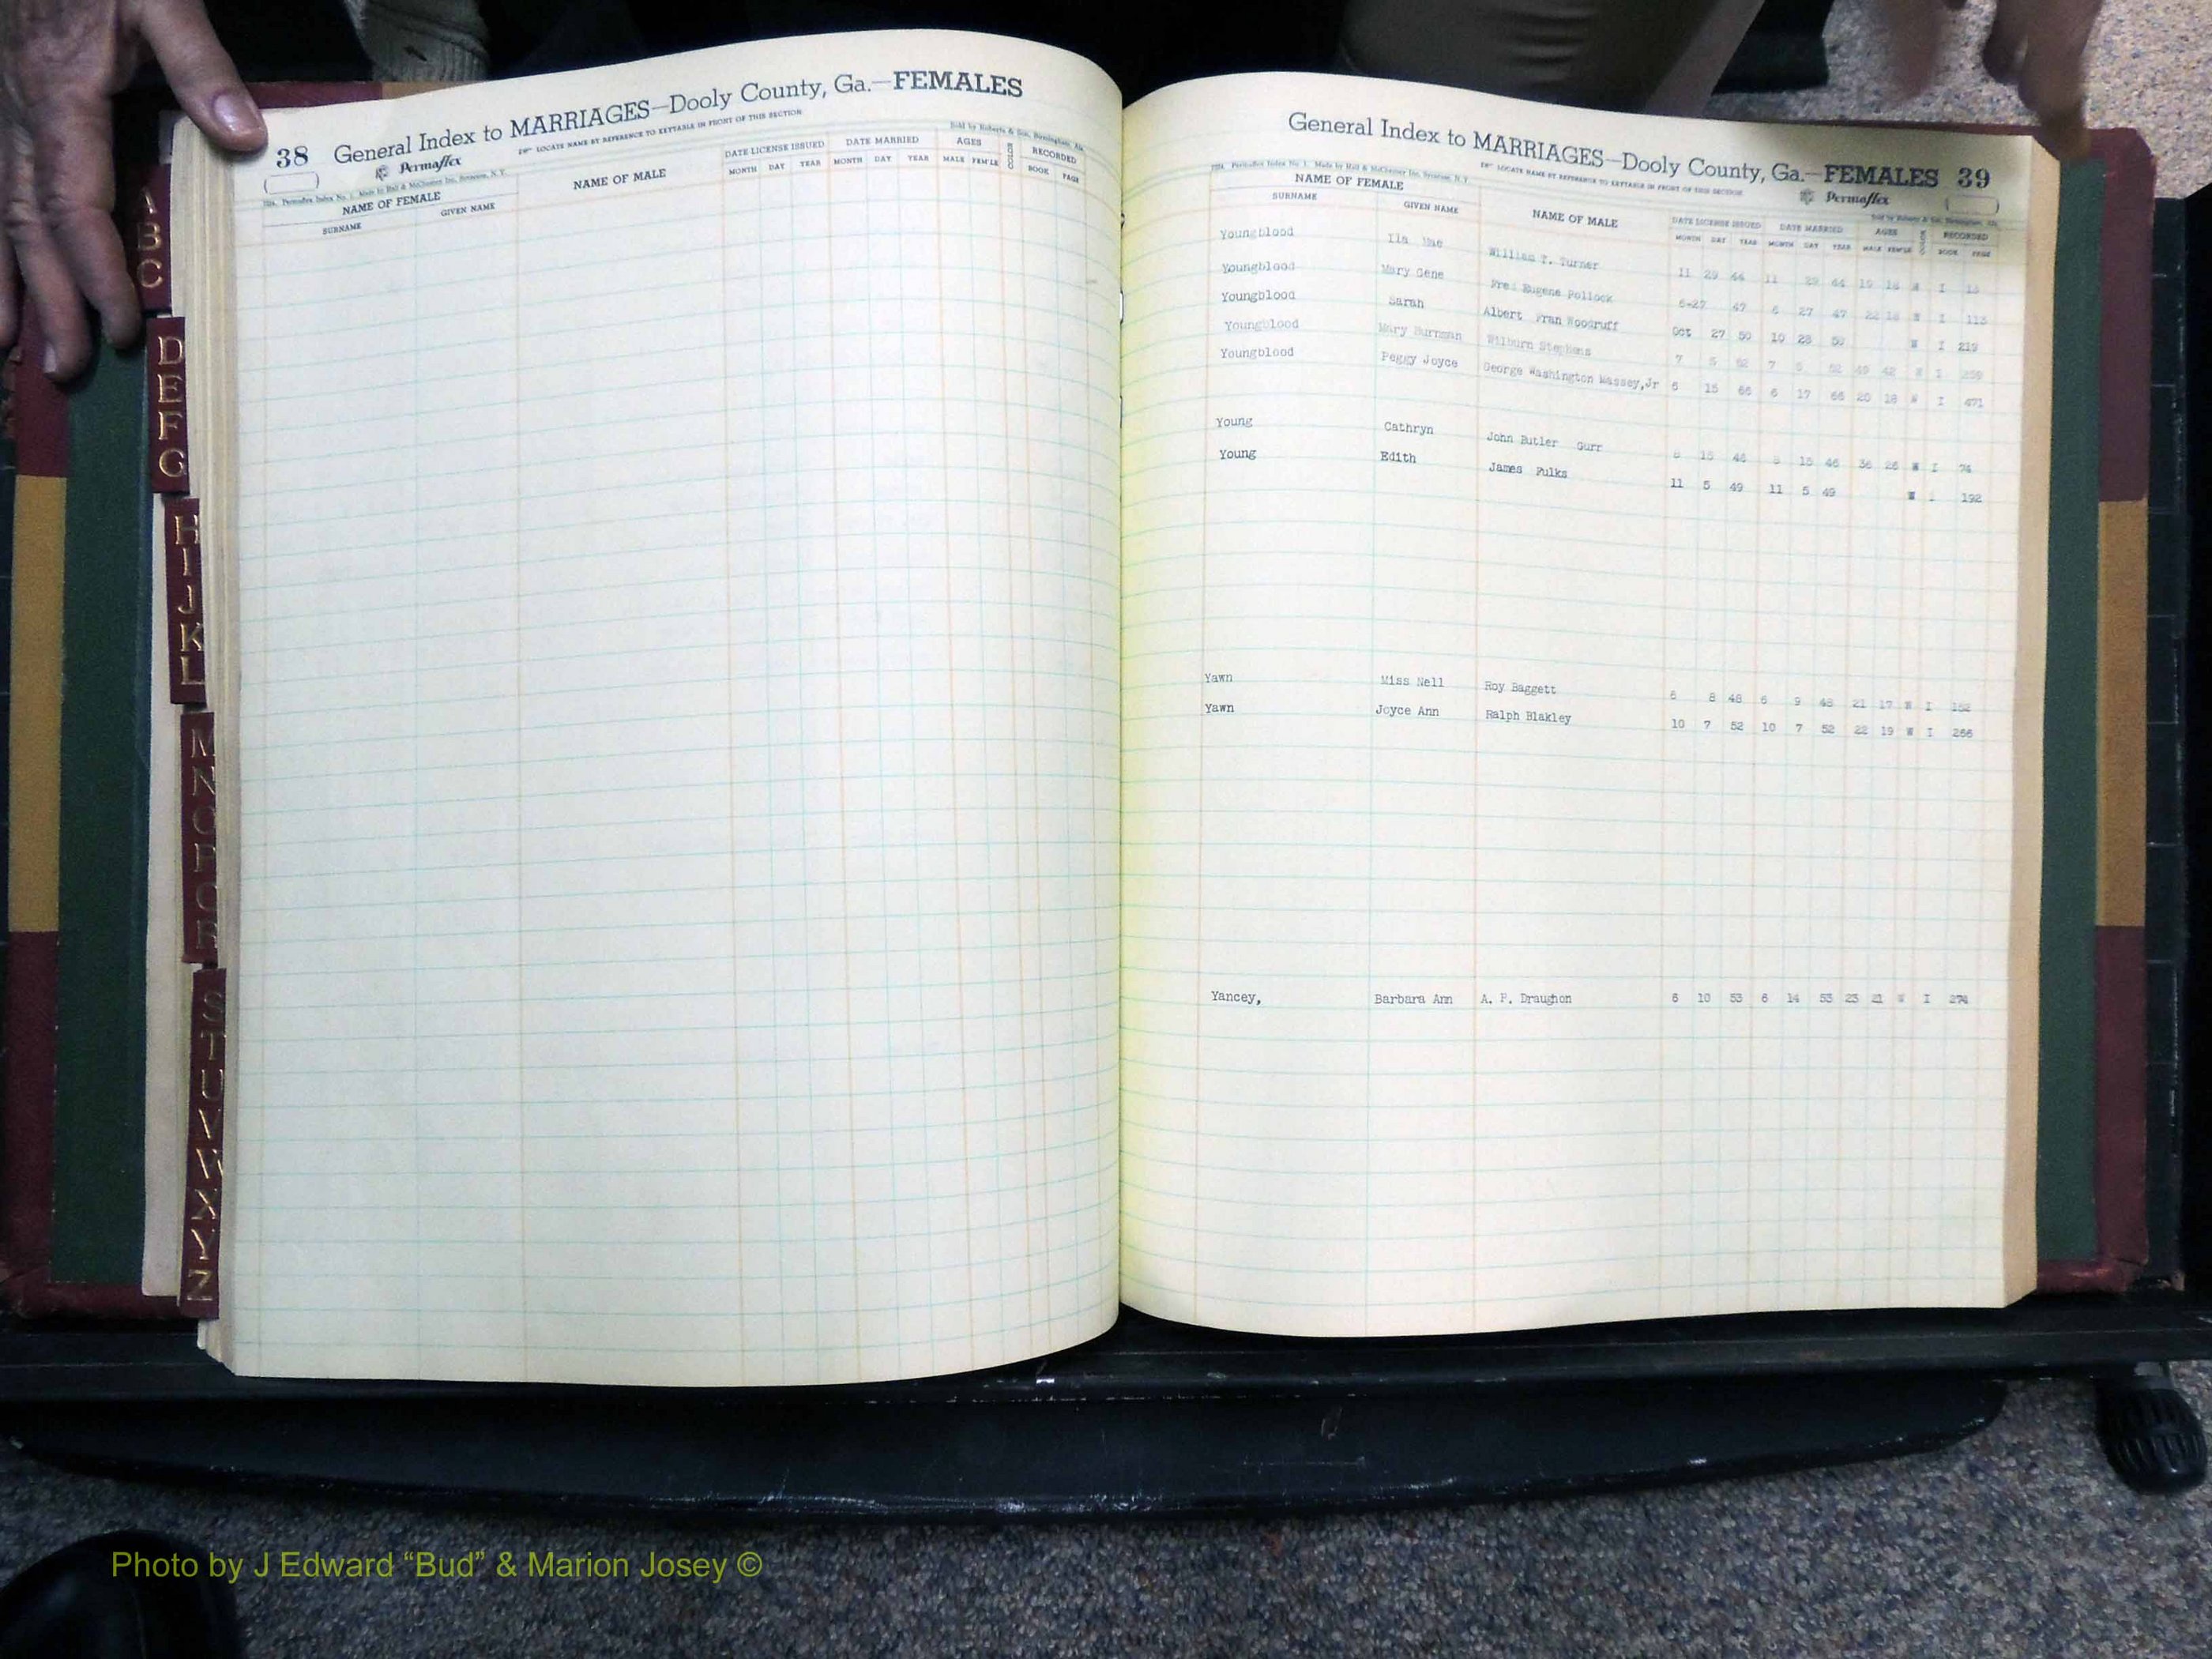 38 General Index to MARRIAGES—Dooly County, Ga.—FEMALES
Permaflex
LOCATE NAME BY REFERENCE TO KEYTABLE IN FRONT OF THIS SECTION
Sold by Roberts & Son, Birmingham, Ala.
NAME OF FEMALE NAME OF MALE DATE LICENSE ISSUED DATE MARRIED AGES COLOR RECORDED
SURNAME GIVEN NAME MONTH DAY YEAR MONTH DAY YEAR MALE FEM'LE BOOK PAGE
General Index to MARRIAGES—Dooly County, Ga.—FEMALES 39
LOCATE NAME BY REFERENCE TO KEYTABLE IN FRONT OF THIS SECTION
Permaflex
NAME OF FEMALE NAME OF MALE DATE LICENSE ISSUED DATE MARRIED AGES COLOR RECORDED
SURNAME GIVEN NAME MONTH DAY YEAR MONTH DAY YEAR MALE FEM'LE BOOK PAGE
Youngblood William T. Turner 11 29 44 11 29 44 W I
Youngblood Mary Gene Eugene Pollock 6-27 47 6 27 47 W I 113
Youngblood Sarah Albert Fran Woodruff Oct 27 50 10 28 50 W I 219
Youngblood Mary Wilburn Stephens 7 5 62 7 5 62 49 42 W I
Youngblood Peggy Joyce George Washington Massey,Jr 6 15 66 6 17 66 20 18 W I 471
Young Cathryn John Butler Gurr 8 15 46 8 15 46 36 26 W I 74
Young Edith James Fulks 11 5 49 11 5 49 W I 192
Yawn Miss Nell Roy Baggett 6 8 48 6 9 48 21 17 W I 152
Yawn Joyce Ann Ralph Blakley 10 7 52 10 7 52 22 19 W I 266
Yancey, Barbara Ann A. P. Draughon 6 10 53 6 14 53 23 21 W I 274
A
B
C
D
E
F
G
H
I
J
K
L
M
N
O
P
Q
R
S
T
U
V
W
X
Y
Z
Photo by J Edward “Bud” & Marion Josey ©